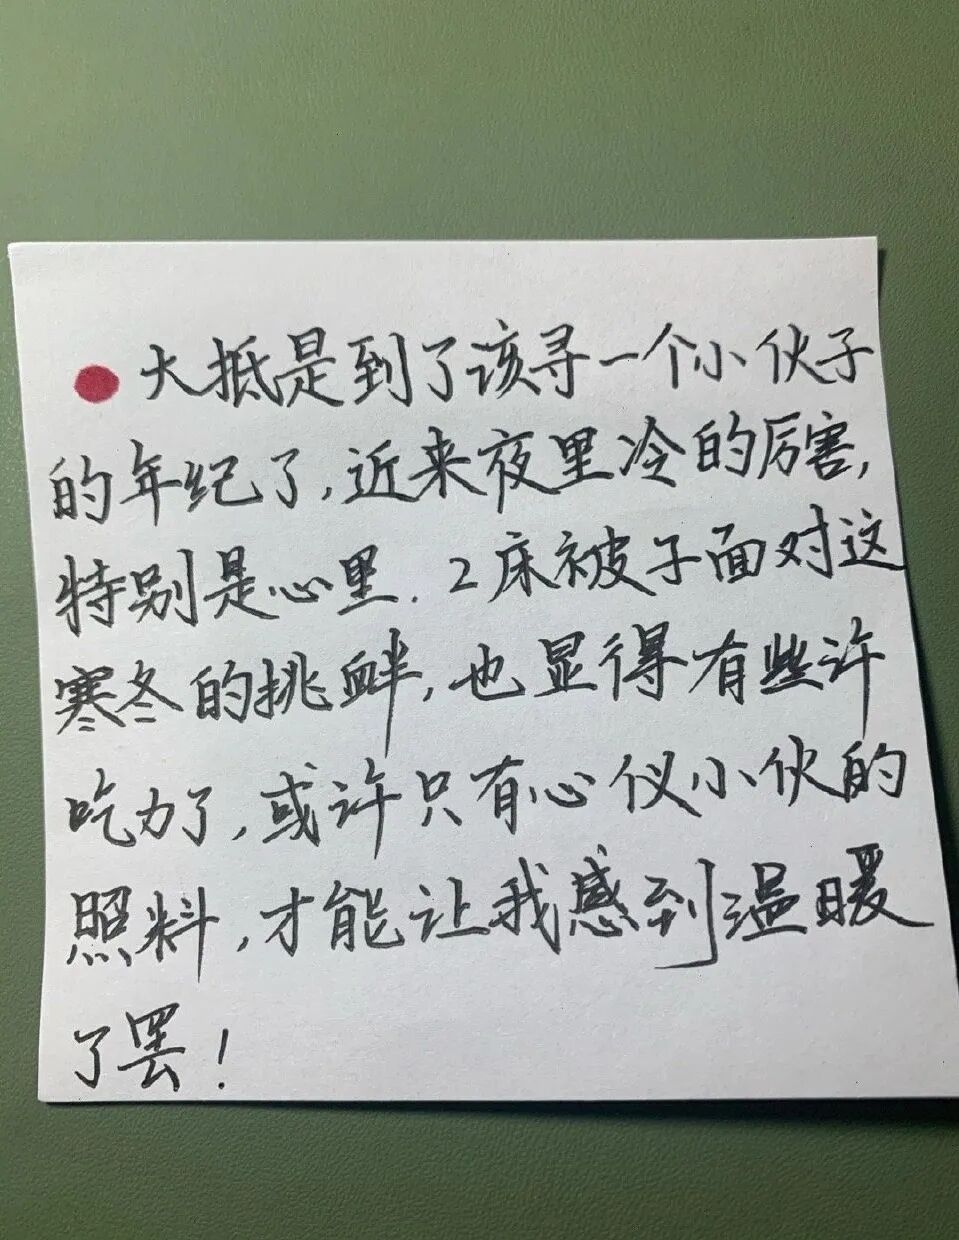 大抵是到了该寻一个小伙子
的年纪了,近来夜里冷的厉害,
特别是心里.2床被子面对这
寒冬的挑衅,也显得有些许
吃力了,或许只有心仪小伙的
照料,才能让我感到温暖
了罢!